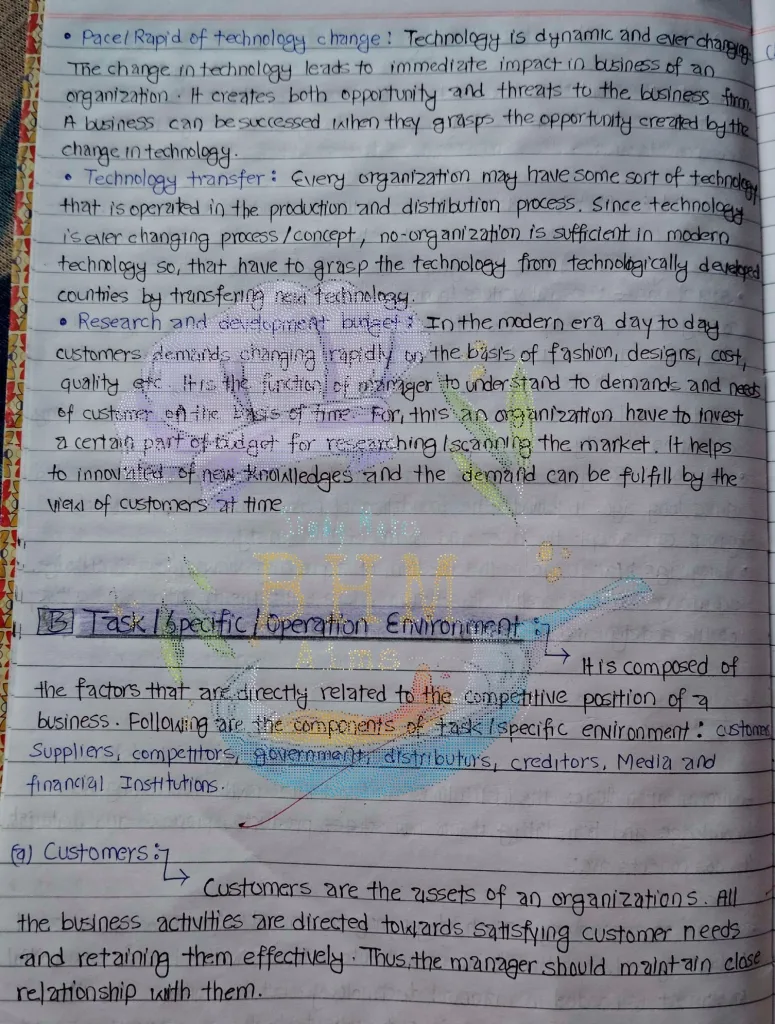 • Pace/Rapid of technology change : Technology is dynamic and ever changing.
The change in technology leads to immediate impact in business of an
organization. It creates both opportunity and threats to the business firm.
A business can be successed when they grasps the opportunity created by the
change in technology.
• Technology transfer : Every organization may have some sort of technology
that is operated in the production and distribution process. Since technology
is ever changing process/concept, no-organization is sufficient in modern
technology so, that have to grasp the technology from technologically developed
countries by transfering new technology.
• Research and development budget : In the modern era day to day
customers demands changing rapidly on the basis of fashion, designs, cost,
quality etc. It is the function of manager to understand to demands and needs
of customer on the basis of time. For, this an organization have to invest
a certain part of budget for researching/scanning the market. It helps
to innovated of new knowledges and the demand can be fulfill by the
view of customers at time
Study Notes
BHM
Aims
B Task/Specific/Operation Environment :
→ It is composed of
the factors that are directly related to the competitive position of a
business. Following are the components of task/specific environment : customers
Suppliers, competitors, government, distributors, creditors, Media and
financial Institutions.
(a) Customers :
→ Customers are the assets of an organizations. All
the business activities are directed towards satisfying customer needs
and retaining them effectively. Thus, the manager should maintain close
relationship with them.